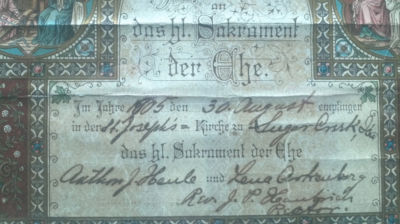 an
das hl. Sakrament
der Ehe.
Im Jahre 1905 den 30. August empfingen
in der St. Joseph's = Kirche zu Sugar Creek
das hl. Sakrament der Ehe
Anthon J. Henle und Lena
Rev. J. P.